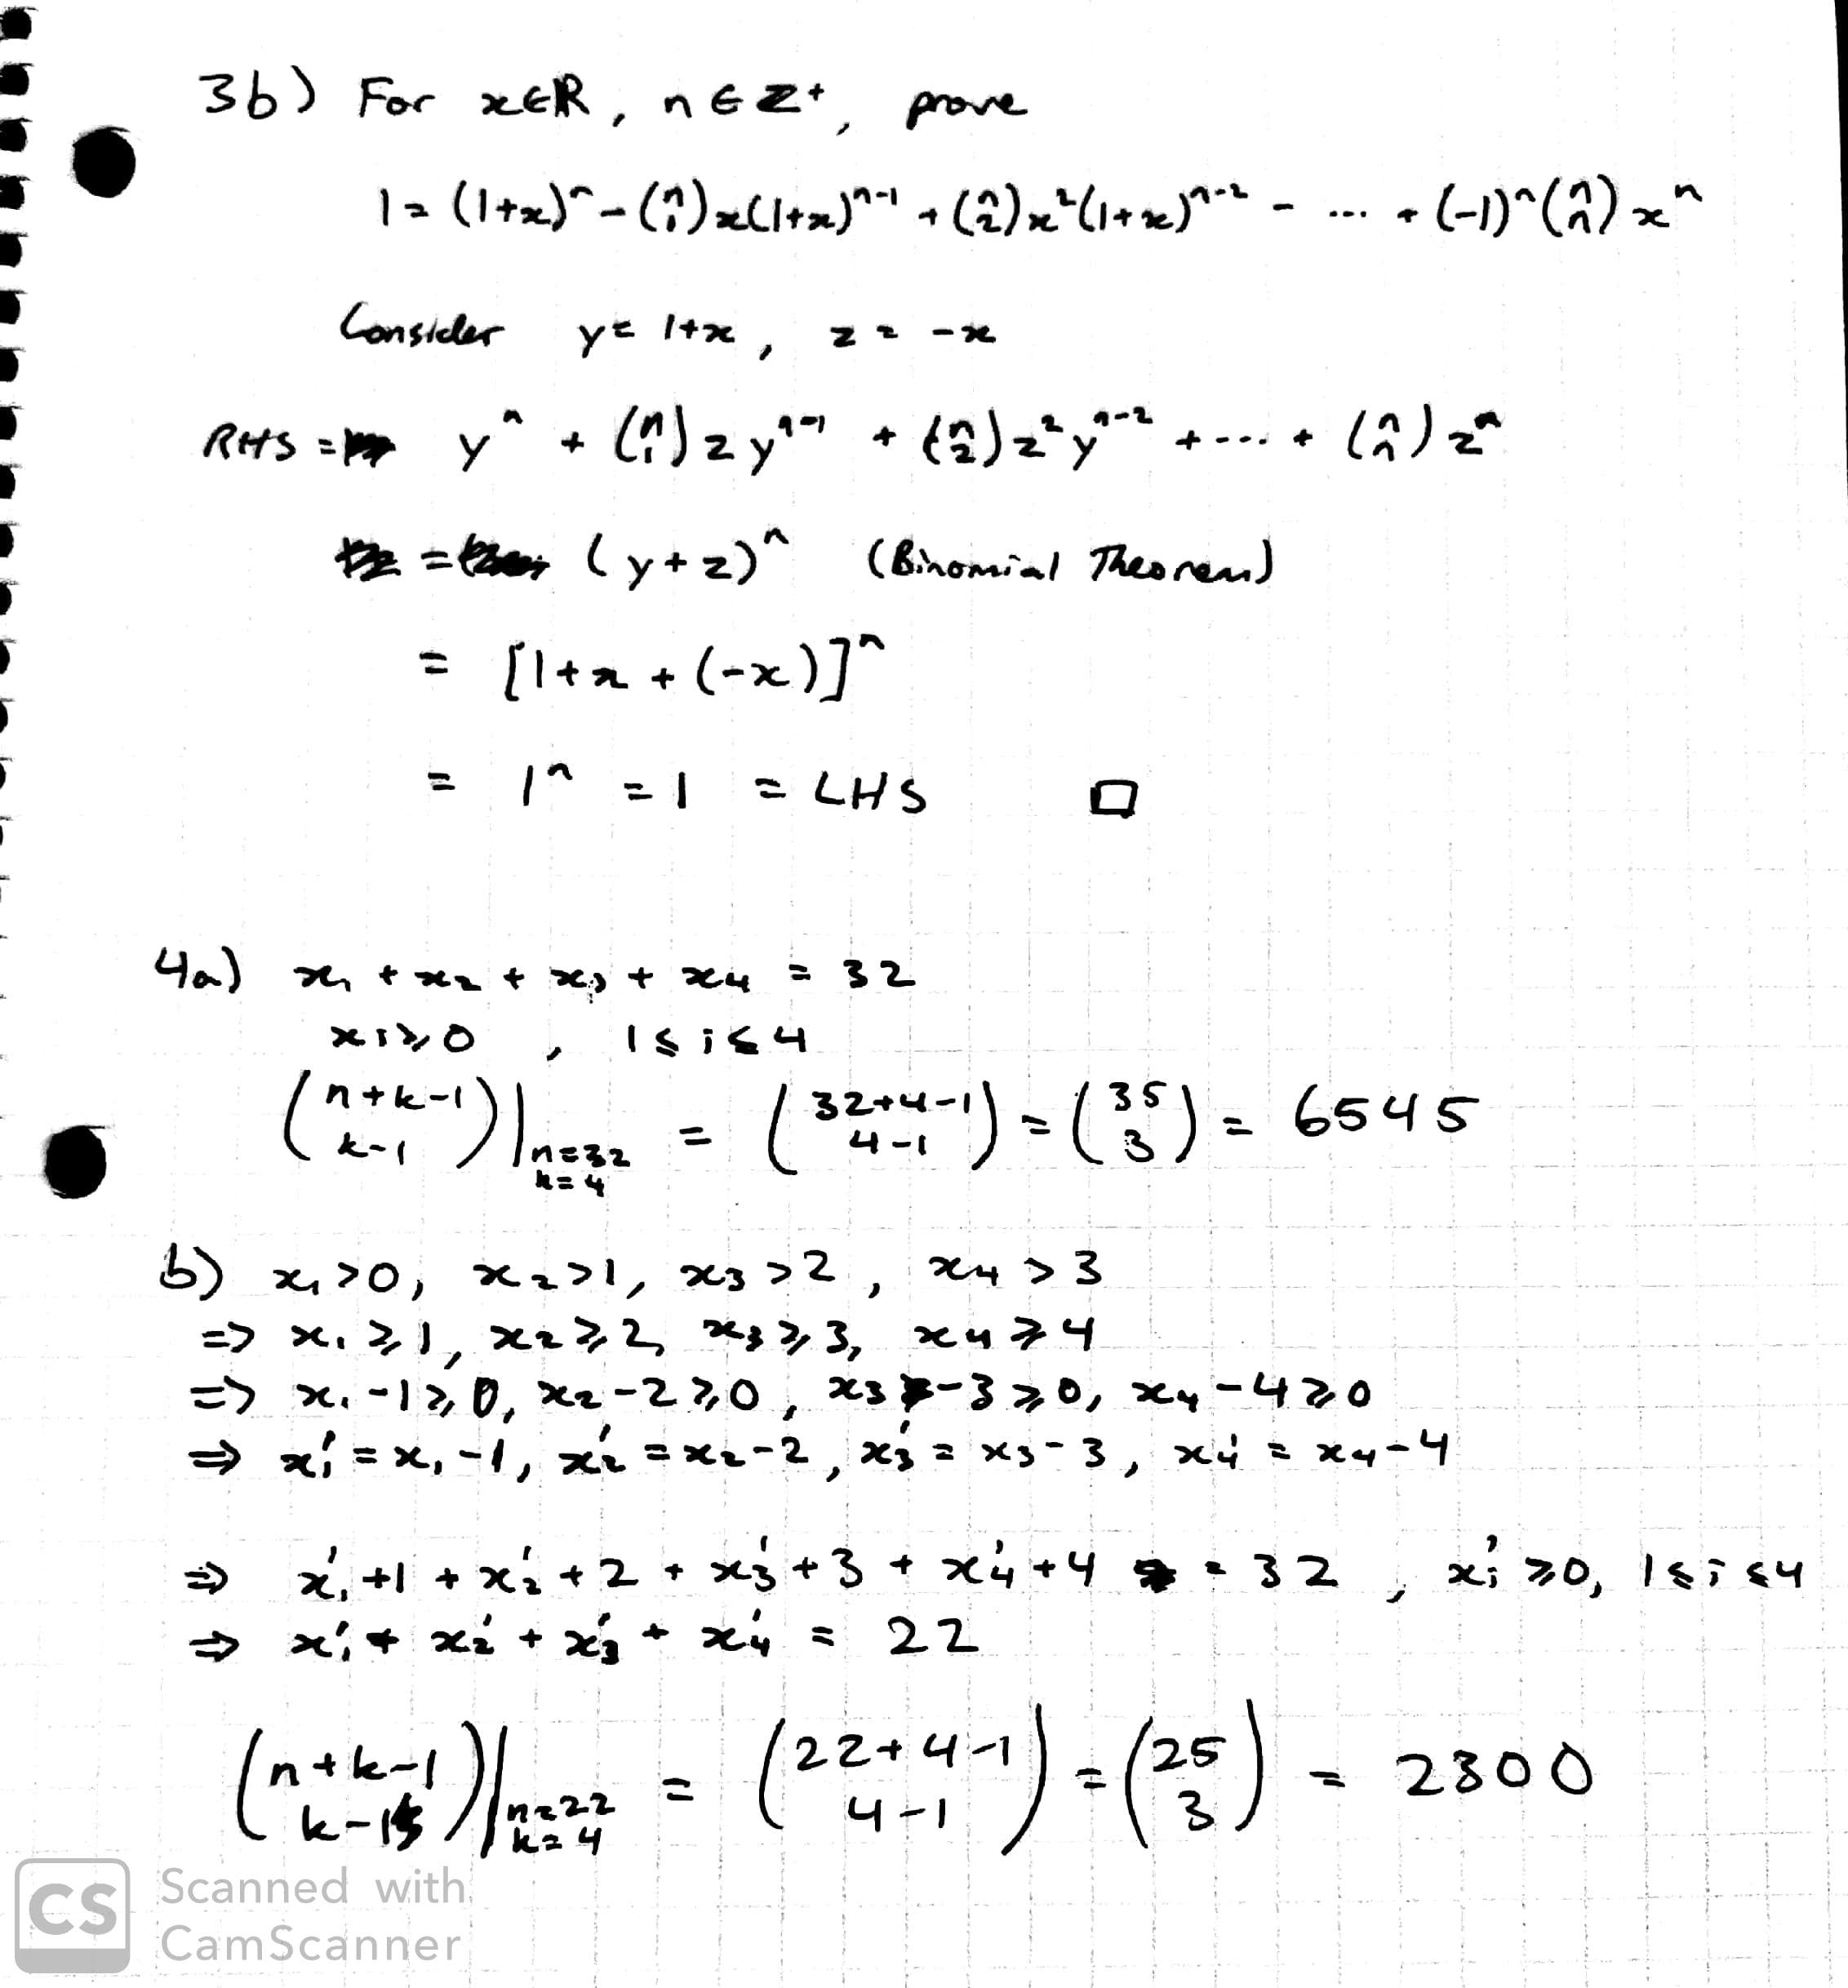 3b) For x∈R, n∈Z⁺, prove
1 = (1+x)ⁿ - (n 1)x(1+x)ⁿ⁻¹ + (n 2)x²(1+x)ⁿ⁻² - ... + (-1)ⁿ(n n)xⁿ
Consider y = 1+x, z = -x
RHS = yⁿ + (n 1)zyⁿ⁻¹ + (n 2)z²yⁿ⁻² + ... + (n n)zⁿ
= (y+z)ⁿ (Binomial Theorem)
= [1+x+(-x)]ⁿ
= 1ⁿ = 1 = LHS □
4a) x₁ + x₂ + x₃ + x₄ = 32
xi ≥ 0, 1 ≤ i ≤ 4
(n+k-1 k-1)|n=32 k=4 = (32+4-1 4-1) = (35 3) = 6545
b) x₁>0, x₂>1, x₃>2, x₄>3
=> x₁≥1, x₂≥2, x₃≥3, x₄≥4
=> x₁-1≥0, x₂-2≥0, x₃-3≥0, x₄-4≥0
=> x₁' = x₁-1, x₂' = x₂-2, x₃' = x₃-3, x₄' = x₄-4
=> x₁'+1 + x₂'+2 + x₃'+3 + x₄'+4 = 32, xi' ≥0, 1≤i≤4
=> x₁' + x₂' + x₃' + x₄' = 22
(n+k-1 k-1)|n=22 k=4 = (22+4-1 4-1) = (25 3) = 2300
CS Scanned with
CamScanner